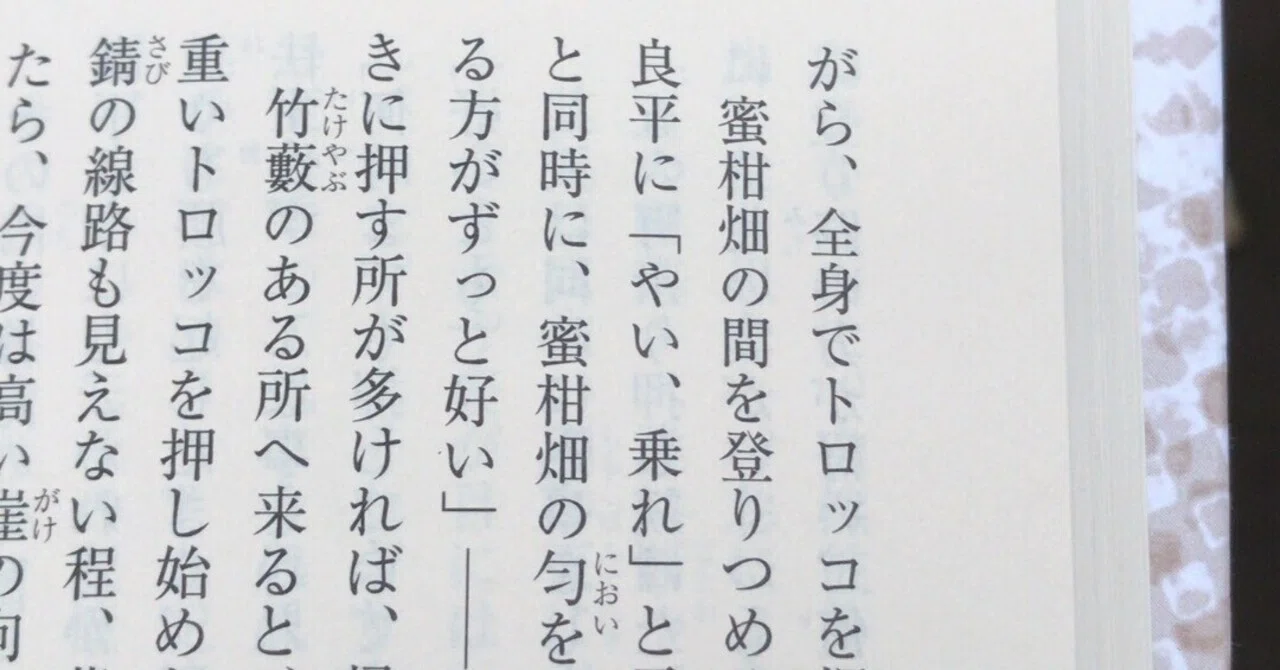 がら、全身でトロッコを
蜜柑畑の間を登りつめ
良平に「やい、乗れ」と
と同時に、蜜柑畑の匂を
におい
る方がずっと好い」――
きに押す所が多ければ、
竹藪のある所へ来ると
たけやぶ
重いトロッコを押し始め
錆の線路も見えない程、
さび
たら、今度は高い崖の向
がけ